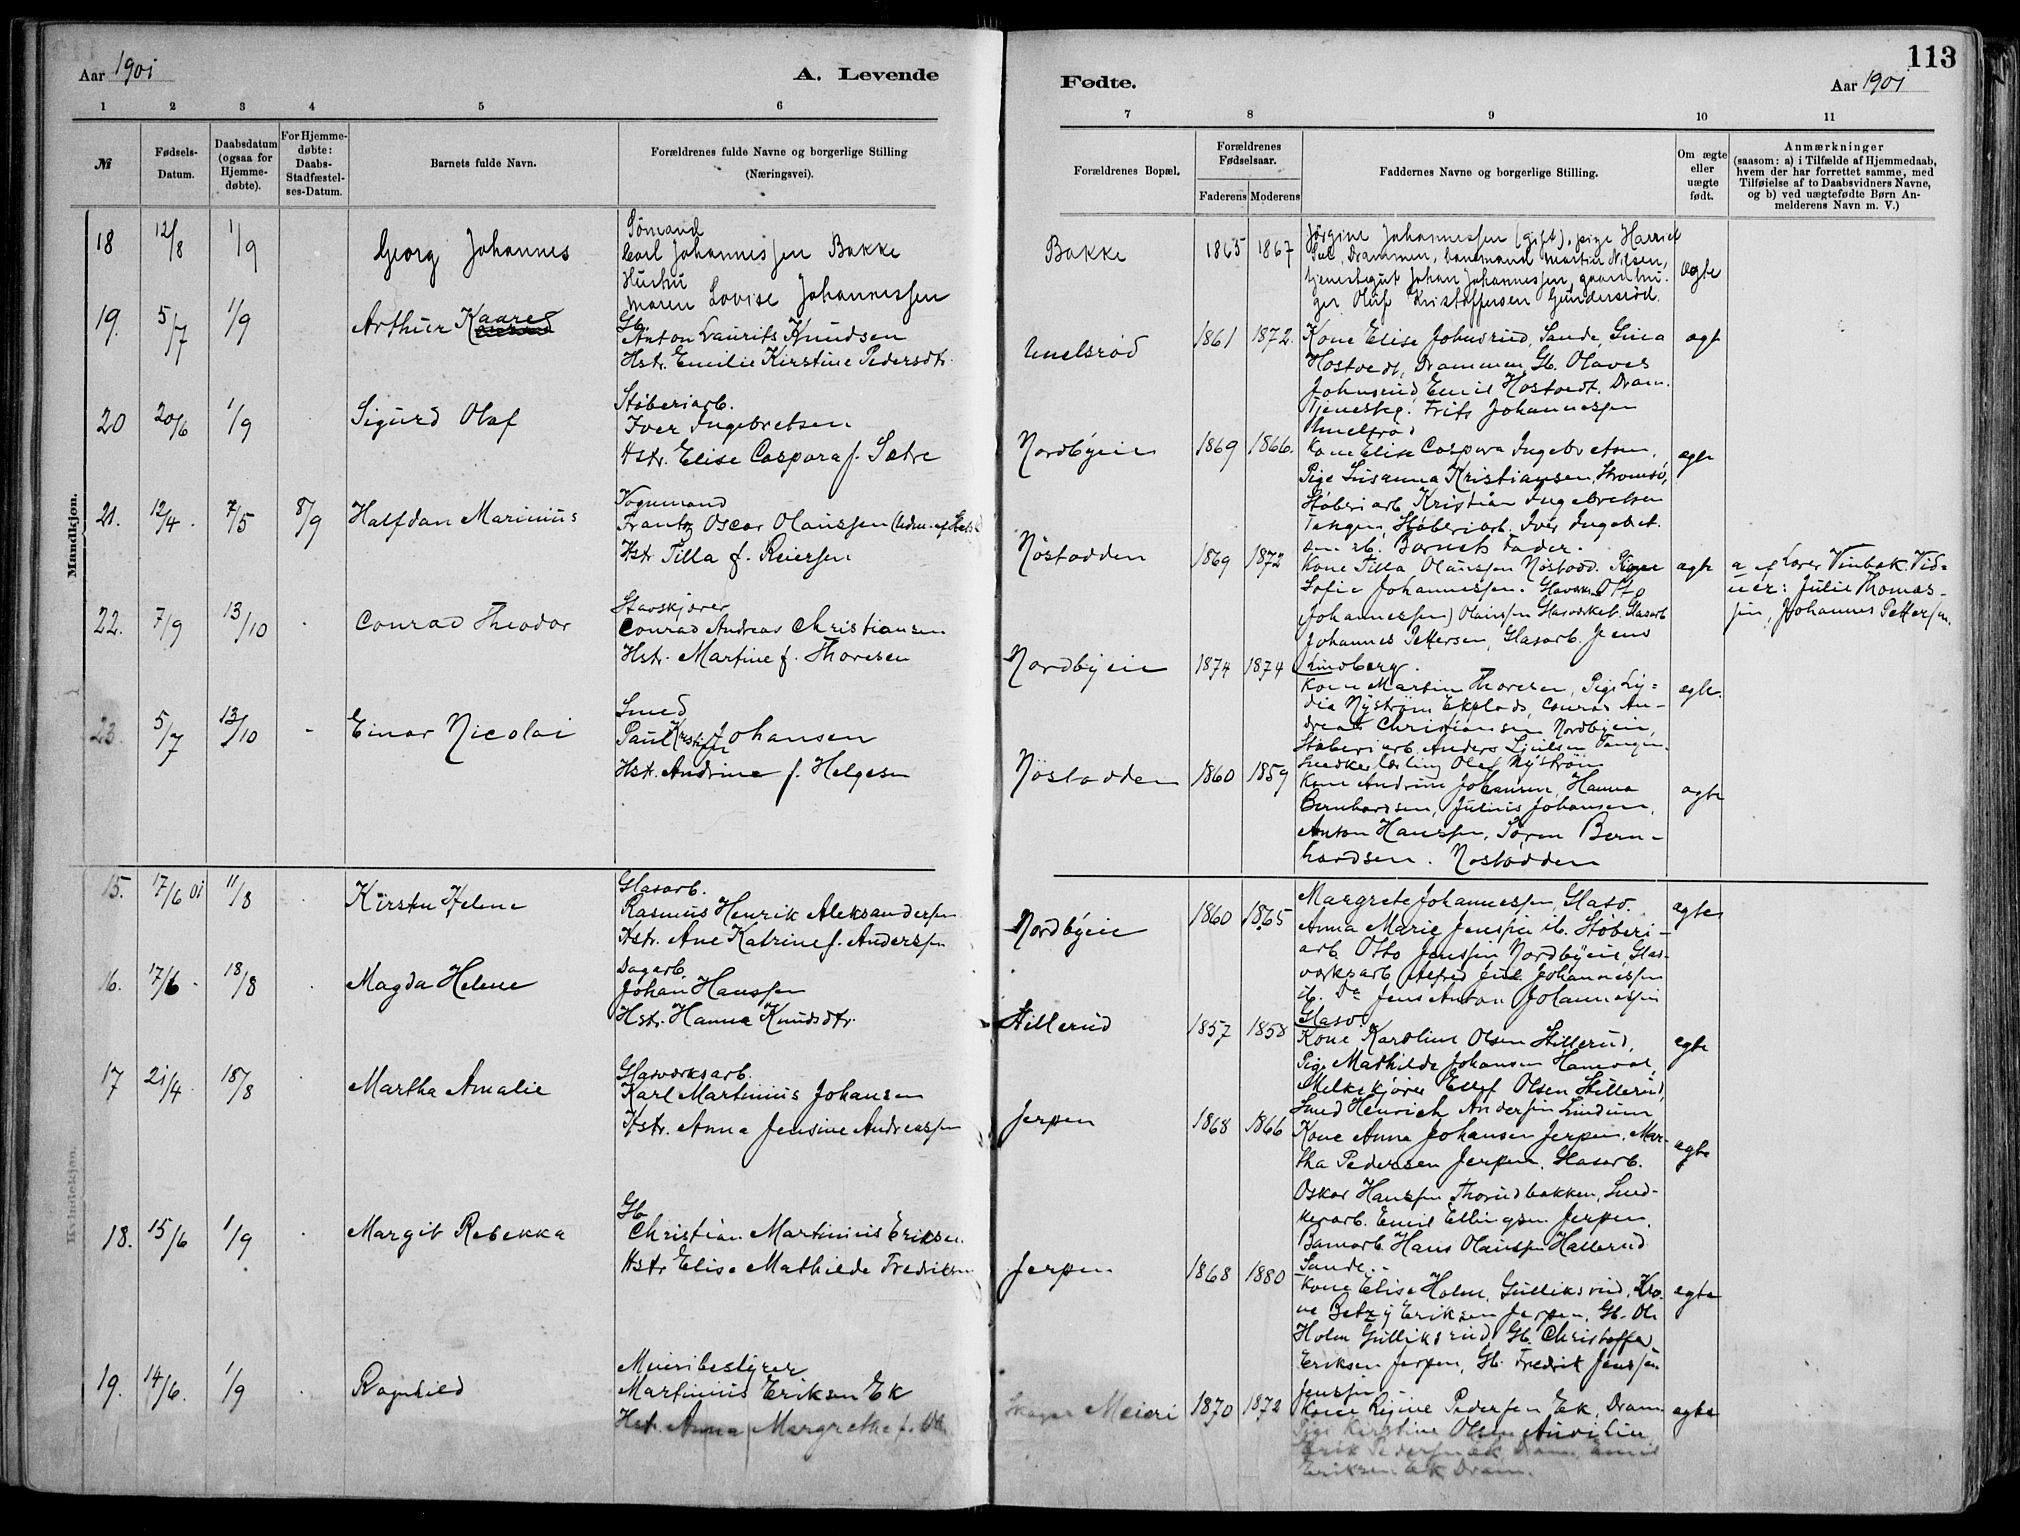 113
Aar 1901
A. Levende
Fødte.
Aar 1901
1 2 3 4 5 6 7 8 9 10 11
№
Fødsels-
Datum.
Daabsdatum
(ogsaa for
Hjemme-
døbte).
For Hjemme-
døbte:
Daabs-
Stadfæstel-
ses-Datum.
Barnets fulde Navn.
Forældrenes fulde Navne og borgerlige Stilling
(Næringsvei).
Forældrenes Bopæl.
Forældrenes
Fødselsaar.
Faderens Moderens
Faddernes Navne og borgerlige Stilling.
Om ægte
eller
uægte
født.
Anmærkninger
(saasom: a) i Tilfælde af Hjemmedaab,
hvem der har forrettet samme, med
Tilføielse af to Daabsvidners Navne,
og b) ved uægtefødte Børn An-
melderens Navn m. V.)
Mandkjøn.
18 12/8 1/9 Georg Johannes
Sømand
Carl Johannessen Bakke
Hustru
Maren Lovise Johannessen
Bakke 1865 1867
Jørgine Johannessen (gift), pige Harriet
Drammen, Martin Nilsen,
tjenestegut Johan Johannessen, gaardbru-
ger Oluf Kristoffersen Gunderød.
ægte
19. 5/7 1/9 Arthur Kaare
Gb.
Anton Laurits Knudsen
Hstr. Emilie Kirstine Pedersdtr.
1861 1872.
Kone Elise Johnsrud, Sande, Gina
Hostvedt, Drammen, Gb. Olaves
Johnsrud, Emil Hostvedt, Dram.
Tjenesteg. Frits Johannessen
ægt
20 20/6 1/9 Sigurd Olaf
Støberiarb.
Iver Ingebretsen
Hstr. Elise Caspara f. Sætre
Nordbyeie 1869 1866.
Kone Elise Caspara Ingebretsen,
Pige Susanna Kristiansen, Strømsø,
Støberiarb. Kristian Ingebretsen
Tangen, Støberiarb. Iver Ingebret-
sen ib. Barnets Fader.
ægte
21. 12/4. 7/5 8/9 Halfdan Marinius
Vognmand
Frantz Oscar Olaussen
Hstr. Tilla f. Reiersen
Nøstodden 1869 1872
Kone Tilla Olaussen Nøstodd.
Sofie Johannessen.
Johannessen) Olaussen Glasværket. Glasarb
Johannes Pettersen, Glasarb. Jens
Lindberg.
ægte
a af Lærer Vinbæk. Vid-
ner: Julie Thomas-
sen, Johannes Pettersen.
22. 7/9 13/10 Conrad Theodor
Conrad Andreas Christiansen
Hstr. Martine f. Thoresen
Nordbyeie 1874 1874
Kone Martin Thoresen, Pige Ly-
dia Nystrøm Conrad An-
dreas Christiansen Nordbyeie,
Støberiarb. Anders Tangen.
Snedkerlærling Olaf Nystrøm
ægte.
23. 5/7 13/10 Einar Nicolai
Smed
Paul Kristian Johansen
Hstr. Andrine f. Helgesen
Nøstodden 1860 1859
Kone Andrine Johansen, Hanna
Bernhardsen, Julius Johansen,
Anton Hanssen, Søren Bern-
hardsen. Nøstodden
ægte
Kvindekjøn.
15. 17/6 01 11/8 Kirsten Helene
Glasarb.
Rasmus Henrik Aleksandersen
Hstr. Ane Katrine f. Anderssen
Nordbyeie 1860 1865
Margrete Johannessen, Glasv.
Anna Marie Jenssen ib. Støberi-
arb Otto Jenssen Nordbyeie, Glas-
værksarb Alfred Emil Johannessen
ib. Do Jens Anton Johannessen
Glasv.
ægte
16. 17/6. 18/8 Magda Helene
Dagarb.
Johan Hanssen
Hstr. Hanna Knudsdtr.
Hillerud 1857 1858
Kone Karoline Olsen Hillerud,
Pige Mathilde Johansen
Melkekjører Ellef Olsen Hillerud,
Smed Henrich Andersen Lindum
ægte
17 21/4 18/8 Martha Amalie
Glasværksarb.
Karl Martinius Johansen
Hstr. Anna Jensine Andreassen
Jerpen 1868 1866
Kone Anna Johansen Jerpen, Mar-
tha Pedersen Jerpen, Glasarb.
Oskar Hanssen Thorudbakken, Sned-
kerarb. Emil Ellingsen Jerpen,
Banearb. Hans Olaussen Hallerud
Sande.
ægte
18. 15/6 1/9 Margit Rebekka
Gb
Christian Martinius Eriksen
Hstr Elise Mathilde Fredriksen
Jerpen 1868 1880
Kone Elise Holm, Gulliksrud, Ko-
ne Betzy Eriksen Jerpen, Gb. Ole
Holm Gulliksrud, Gb. Christoffer
Eriksen Jerpen, Gb. Fredrik Jenssen
Jenssen
ægte
19. 14/6. 1/9 Ragnhild
Meieribestyrer
Martinius Eriksen Ek
Hstr. Anna Margrethe f.
Skoger Meieri 1870 1872
Kone Regine Pedersen Ek, Dram
Pige Kirstine Olsen
Erik Pedersen Ek, Dram, Emil
Eriksen Ek Dram.
ægte